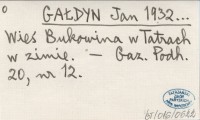 GAŁDYN Jan 1932...
Wieś Bukowina w Tatrach
w zimie. — Gaz. Podh.
20, nr 12.